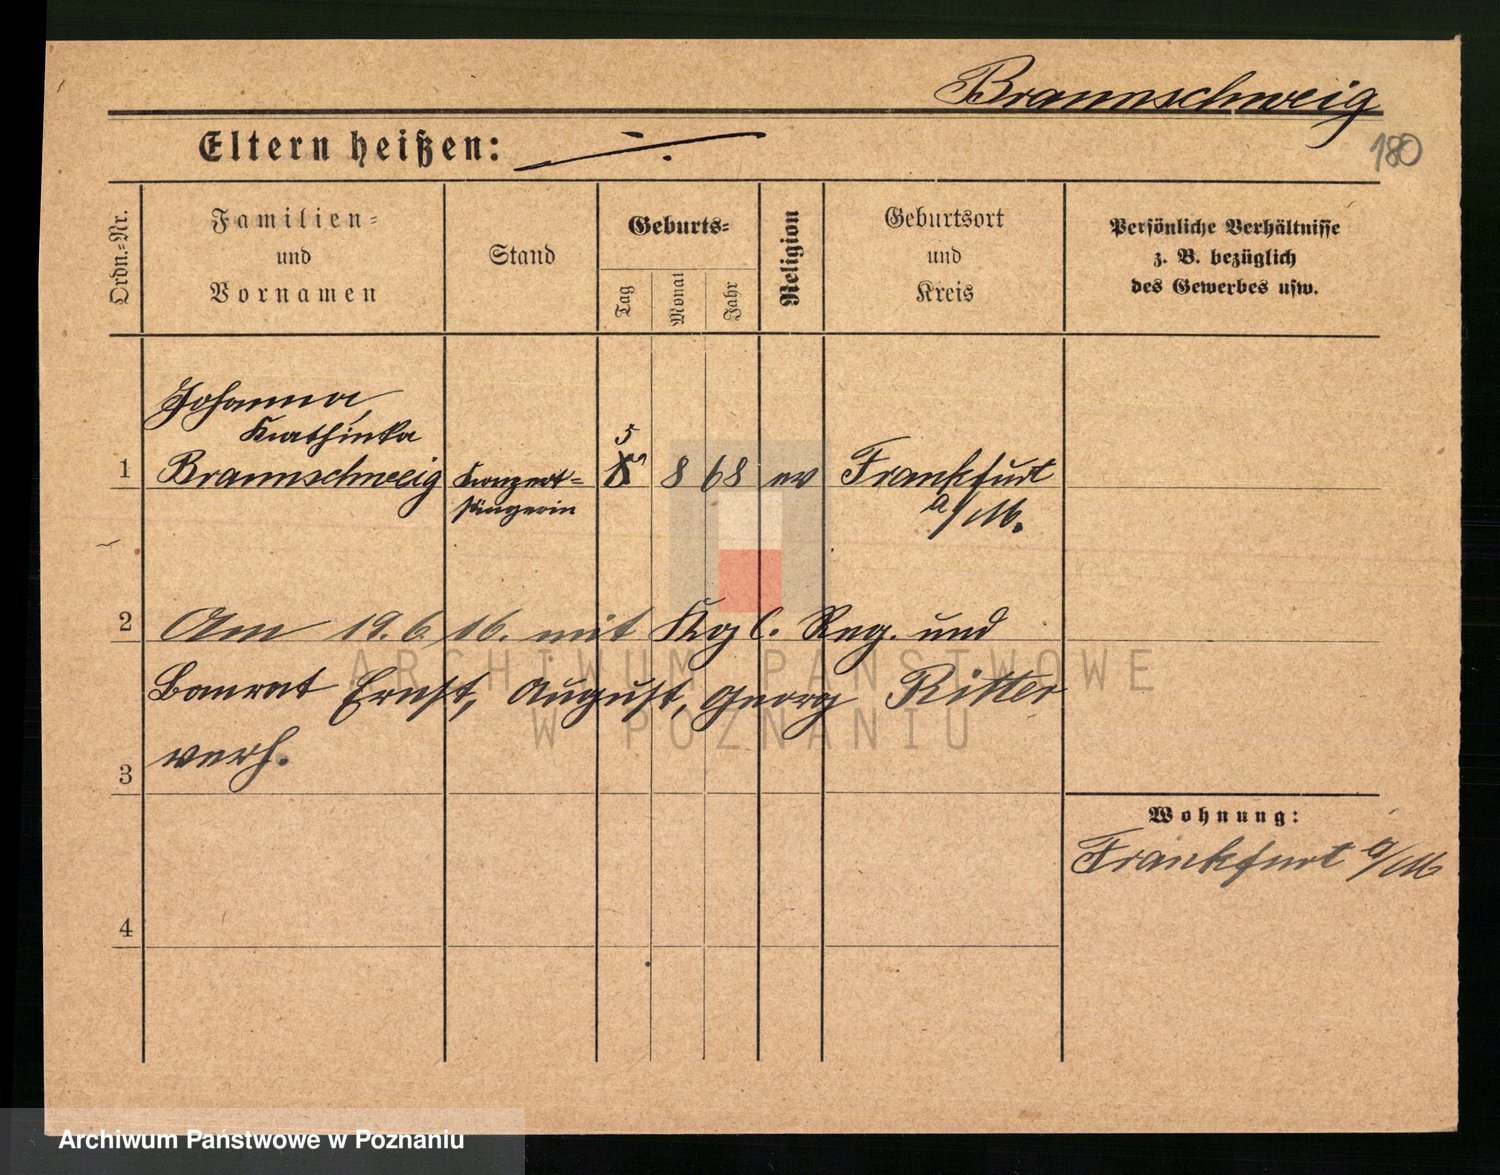 Braunschweig
180
Eltern heißen:
Ordn.-Nr.
Familien-
und
Vornamen
Stand
Geburts-
Tag
Monat
Jahr
Religion
Geburtsort
und
Kreis
Persönliche Verhältnisse
z. B. bezüglich
des Gewerbes usw.
Johanna,
Kathinka
1 Braunschweig Konzert= 5 8 68 ev Frankfurt
sängerin a/M.
2 Am 19.6.16. mit Kgl. Reg. und
Baurat Ernst, August, Georg Ritter
3 verh.
Wohnung:
Frankfurt a/M
4
ARCHIWUM PAŃSTWOWE
W POZNANIU
Archiwum Państwowe w Poznaniu